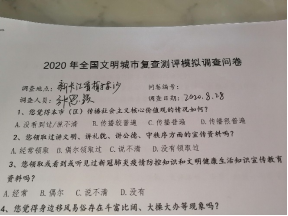 2020年全国文明城市复查测评模拟调查问卷
调查地点: 问卷编号:
调查人员: 调查日期: 2020.8.28
1、您觉得本市（区）传播社会主义核心价值观的情况如何?
A.没看到过/说不清 B.传播较普遍 C.传播普遍 D.传播很普遍
2、您领取过讲文明、拼礼貌、讲公德、守秩序方面的宣传资料吗?
A.经常领取 B.偶尔领取过 C.说不清 D.没有领取过
3、您领取或看到或听见过新冠肺炎疫情防控知识和文明健康生活知识宣传教育
资料吗?
A.经常 B.偶尔 C.说不清 D.没有
4、您觉得身边移风易俗存在丰富比阔、大操大办等现象吗?